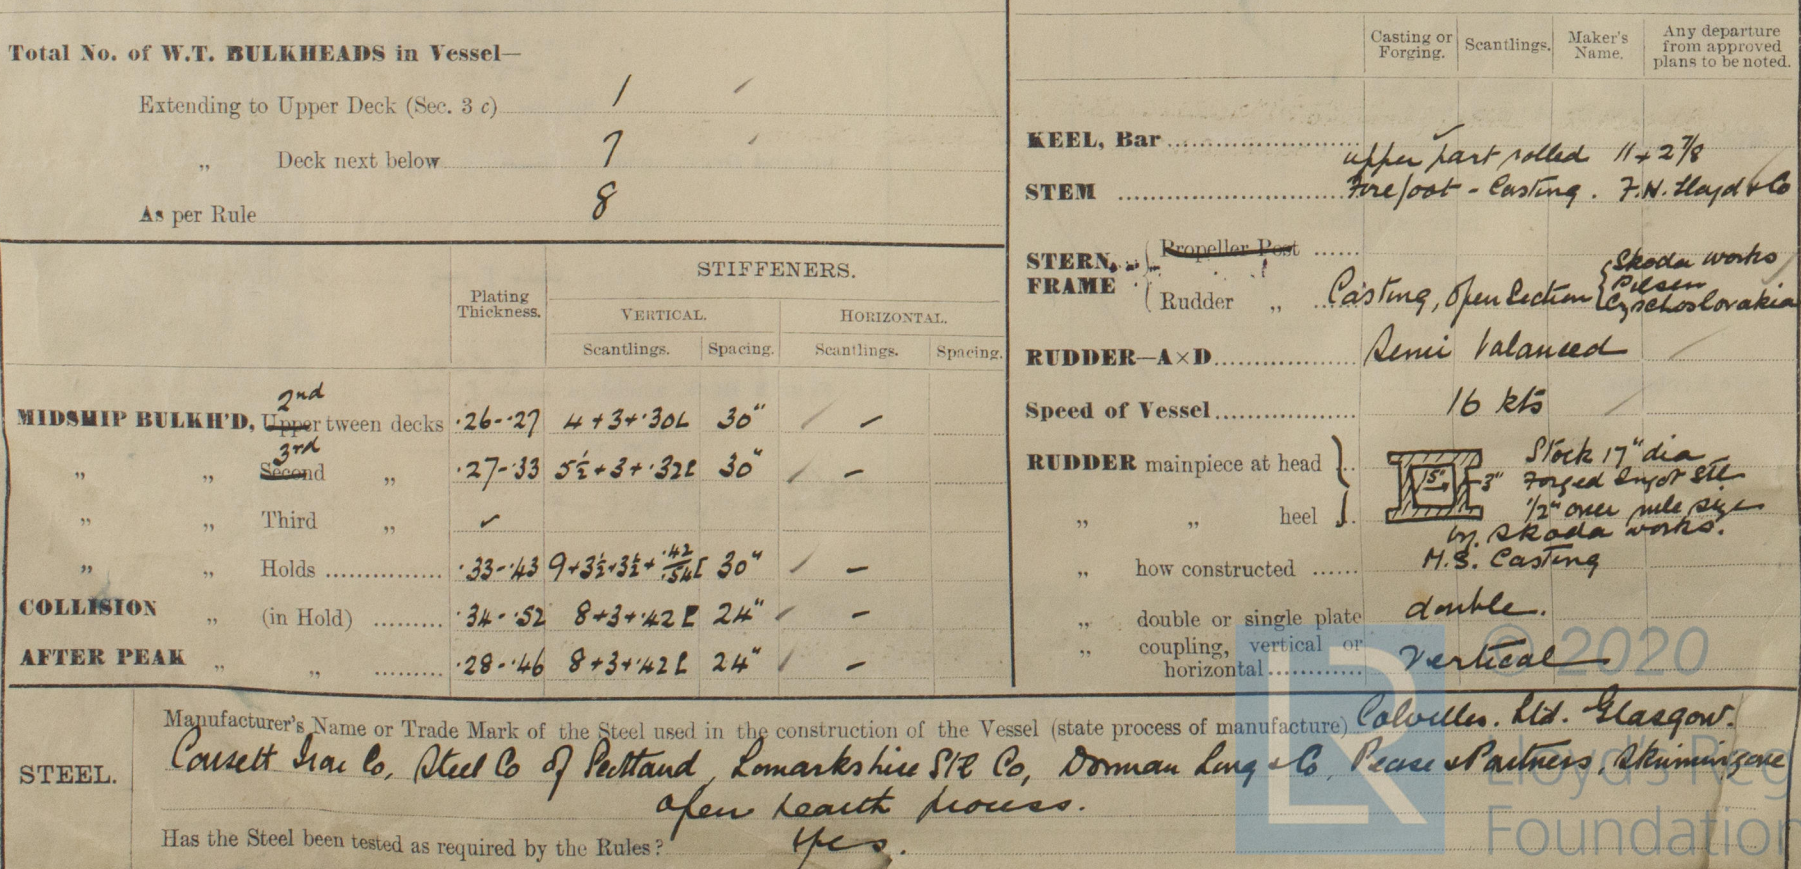 Total No. of W.T. BULKHEADS in Vessel—
Extending to Upper Deck (Sec. 3 c) 1
„ Deck next below 7
As per Rule 8
Plating Thickness.
STIFFENERS.
VERTICAL. HORIZONTAL.
Scantlings. Spacing. Scantlings. Spacing.
2nd
MIDSHIP BULKH'D, Upper tween decks ·26-·27 4+3+·30L 30" –
3rd
„ „ Second „ ·27-·33 5½+3+·32L 30" –
„ „ Third „ ✓
„ „ Holds ·33-·43 9+3½+3½+·42/·54[ 30" –
COLLISION „ (in Hold) ·34-·52 8+3+·42L 24" –
AFTER PEAK „ „ ·28-·46 8+3+·42L 24" –
Casting or Forging. Scantlings. Maker's Name. Any departure from approved plans to be noted.
KEEL, Bar ✓
upper part rolled 11+2⅞
STEM Forefoot - Casting. F.H. Lloyd & Co
STERN FRAME
Propeller Post
Rudder „ Casting, open Section { Skoda works
Pilsen
Czschoslovakia
RUDDER—A×D Semi balanced
Speed of Vessel 16 kts
RUDDER mainpiece at head
„ „ heel
15" 3"
Stock 17" dia
Forged Ingot Stl
1/2" over rule size
by Skoda works.
„ how constructed M.S. Casting
„ double or single plate double.
„ coupling, vertical or
horizontal Vertical
STEEL.
Manufacturer's Name or Trade Mark of the Steel used in the construction of the Vessel (state process of manufacture) Colvilles. Ltd. Glasgow.
Consett Iron Co, Steel Co of Scotland, Lanarkshire Stl Co, Dorman Long & Co, Pease & Partners, Skinningrove
open hearth process.
Has the Steel been tested as required by the Rules? Yes.
© 2020
LR
Lloyd's Reg
Foundation